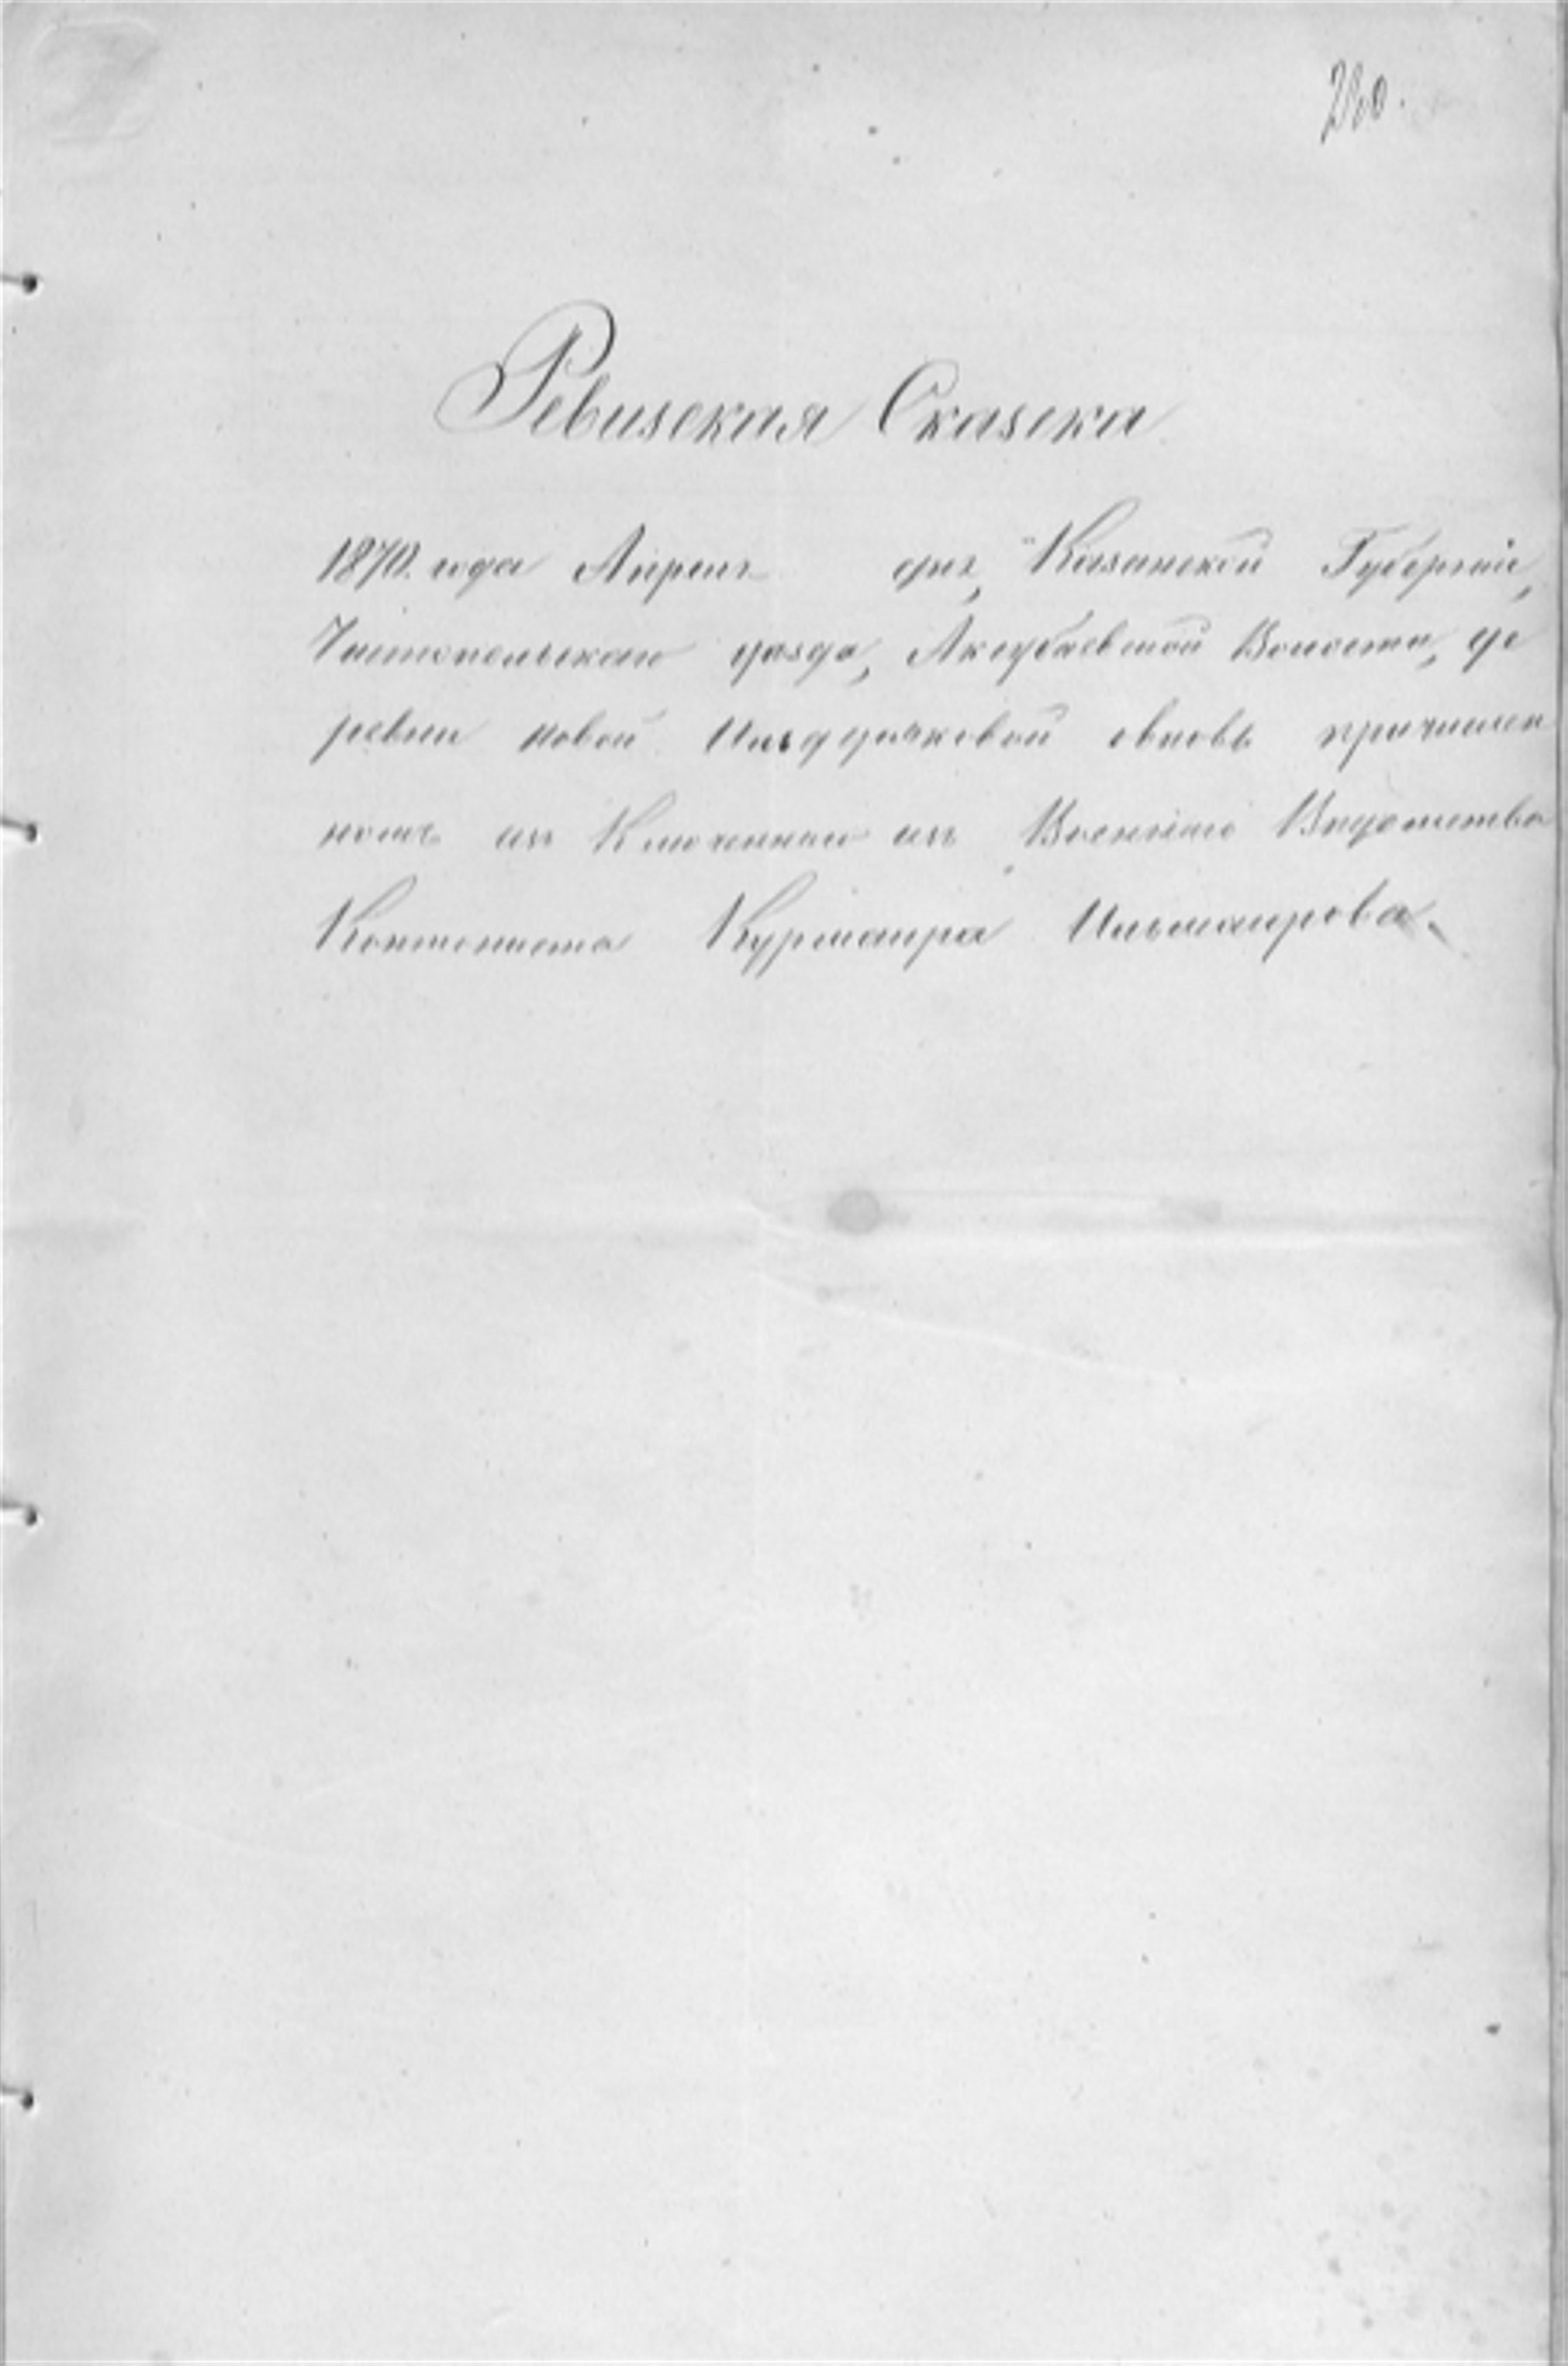 280.
Ревизская Сказска
1870. года Апреля дня, Казанской Губернии,
Чистопольскаго уезда, Аксубаевской Волости, де
ревни новой Ильдеряковой вновь причислен
номъ из Ключеннаго изъ Военнаго Ведомства
Контониста Курмаира Ильмаирова.